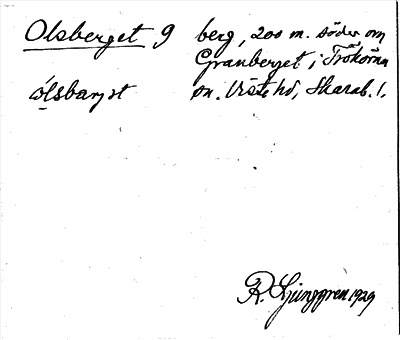 Olsberget 9 berg, 200 m. söder om
Granberget i Trökörna
ólsbarjət sn. Viste hd, Skarab. l.
R. Ljunggren 1929